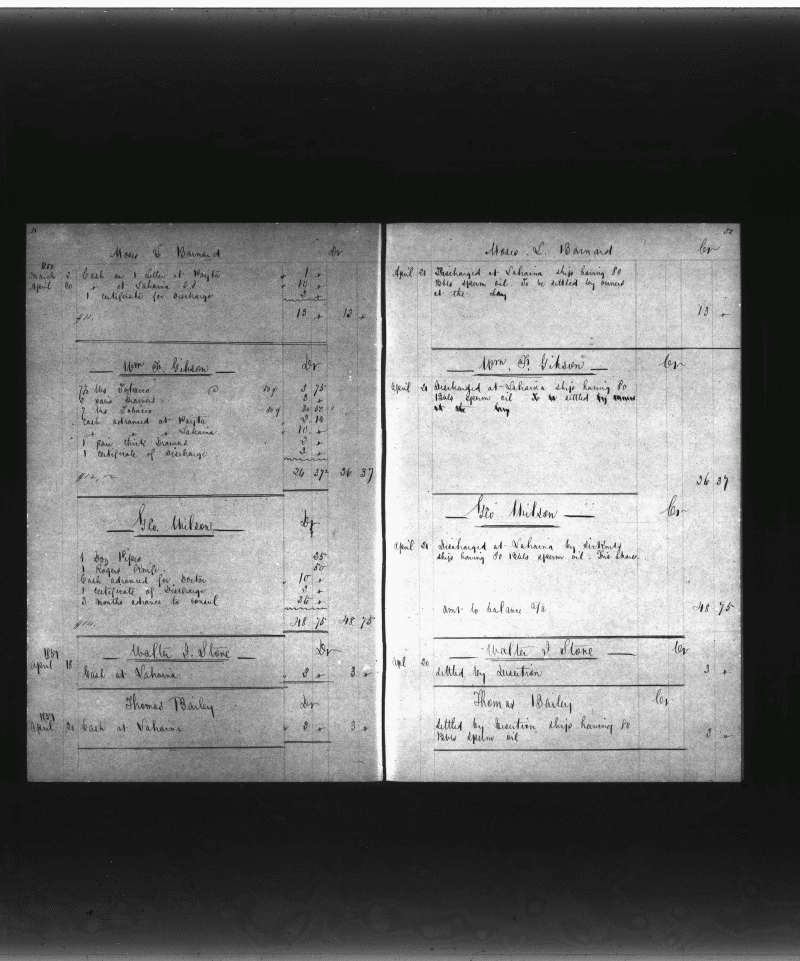 Moses L Barnard Dr
March 2 Cash on 1 Letter at Payta " 1 "
April 20 " at Lahaina " 10 "
1 certificate for Discharge 2 "
13 " 13 "
Wm F. Gibson Dr
7½ lbs Tobacco @ 50¢ 3 75
2 pairs Drawers 3 "
7 lbs Tobacco 50¢ 3 50
Cash advanced at Payta
" " " Lahaina 10 "
1 pair thick Drawers 2 "
1 certificate of Discharge 2 "
26 37 26 37
Geo Wilson Dr
1 Doz Pipes 25
1 Rogers Knife 50
Cash advanced for Doctor 10 "
1 certificate of Discharge 2 "
3 months advance to consul 36 "
48 75 48 75
1859
April 18
Walter I. Stone Dr
Cash at Lahaina " 3 " 3 "
Thomas Barley Dr
1859
April 20 Cash at Lahaina " 3 " 3 "
52
Moses L. Barnard Cr
April 20 Discharged at Lahaina ship having 80
Bbls sperm oil. To be settled by owners
at the day
13 "
Wm. F. Gibson Cr
April 20 Discharged at Lahaina ship having 80
Bbls sperm oil to be settled by owners
at the
26 37
Geo Wilson Cr
April 20 Discharged at Lahaina by sickness
ship having 80 Bbls sperm oil. His share
amt to balance a/c 48 75
Walter I Stone Cr
Apl 20 settled by Desertion 3 "
Thomas Barley Cr
settled by Desertion ship having 80
Bbls sperm oil 3 "